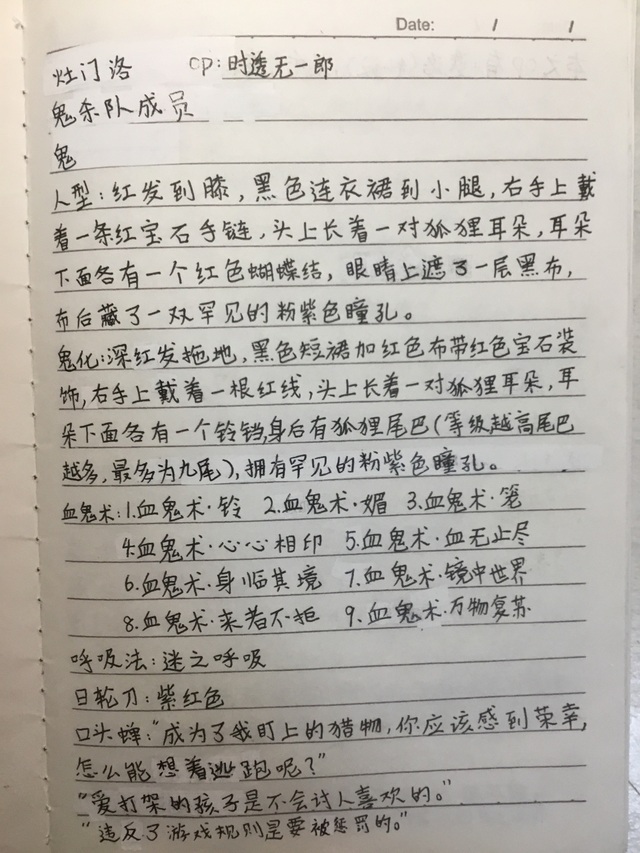 Date: / /
灶门洛 CP:时透无一郎
鬼杀队成员
鬼
人型:红发到膝,黑色连衣裙到小腿,右手上戴
着一条红宝石手链,头上长着一对狐狸耳朵,耳朵
下面各有一个红色蝴蝶结,眼睛上遮了一层黑布,
布后藏了一双罕见的粉紫色瞳孔。
鬼化:深红发拖地,黑色短裙加红色布带红色宝石装
饰,右手上戴着一根红线,头上长着一对狐狸耳朵,耳
朵下面各有一个铃铛,身后有狐狸尾巴(等级越高尾巴
越多,最多为九尾),拥有罕见的粉紫色瞳孔。
血鬼术:1.血鬼术·铃 2.血鬼术·媚 3.血鬼术·笼
4.血鬼术·心心相印 5.血鬼术·血无止尽
6.血鬼术·身临其境 7.血鬼术·镜中世界
8.血鬼术·来者不拒 9.血鬼术·万物复苏
呼吸法:迷之呼吸
日轮刀:紫红色
口头蝉:“成为了我盯上的猎物,你应该感到荣幸,
怎么能想着逃跑呢?”
“爱打架的孩子是不会讨人喜欢的。”
“违反了游戏规则是要被惩罚的。”